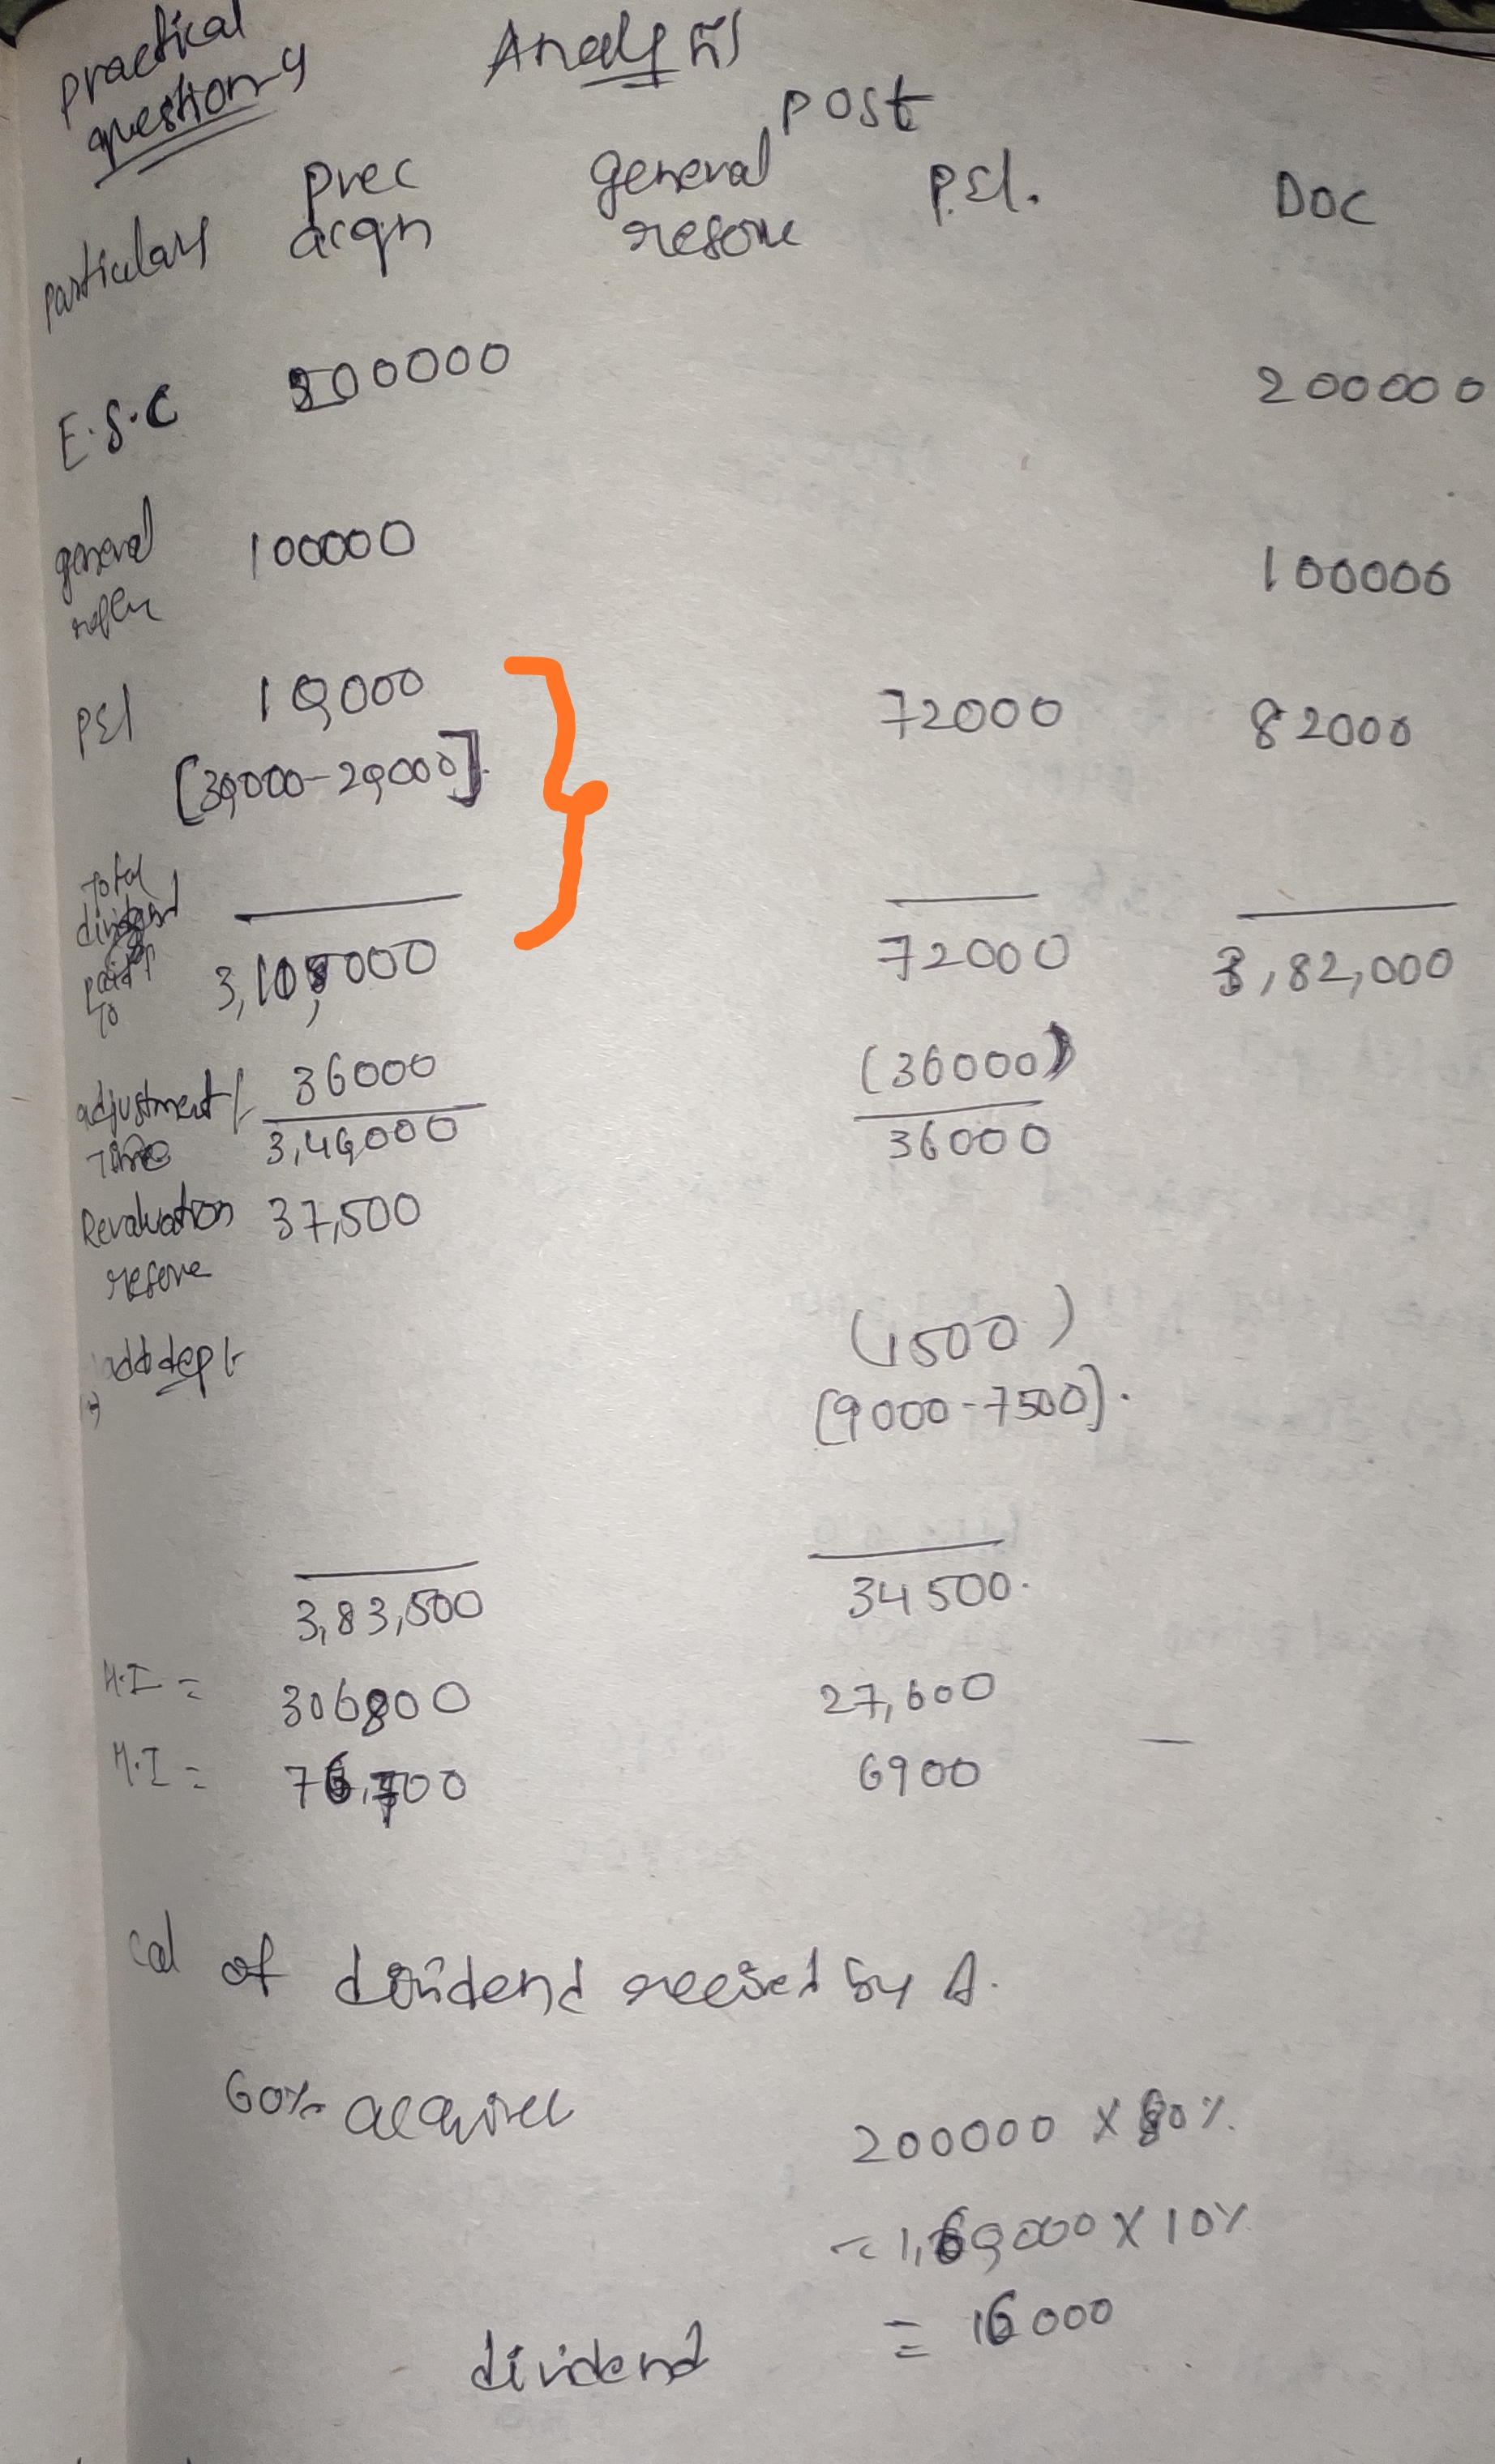 practical question-4
Analysis
post
particulars prec acqn general resove P.El. DOC
E.S.C 200000 200000
general 100000 100000
PEl 10,000 72000 82000
[30,000-20,000].
Total
3,10,000 72000 3,82,000
adjustment 36000 (36000)
3,46,000 36000
Revaluation 37,500
resove
add dep (1500)
[9000-7500].
3,83,500 34500.
H.I = 306800 27,600
M.I = 76,700 6900
cal of dividend received by A.
60% acquired 200000 X 80%.
= 1,60,000 X 10%
dividend = 16000